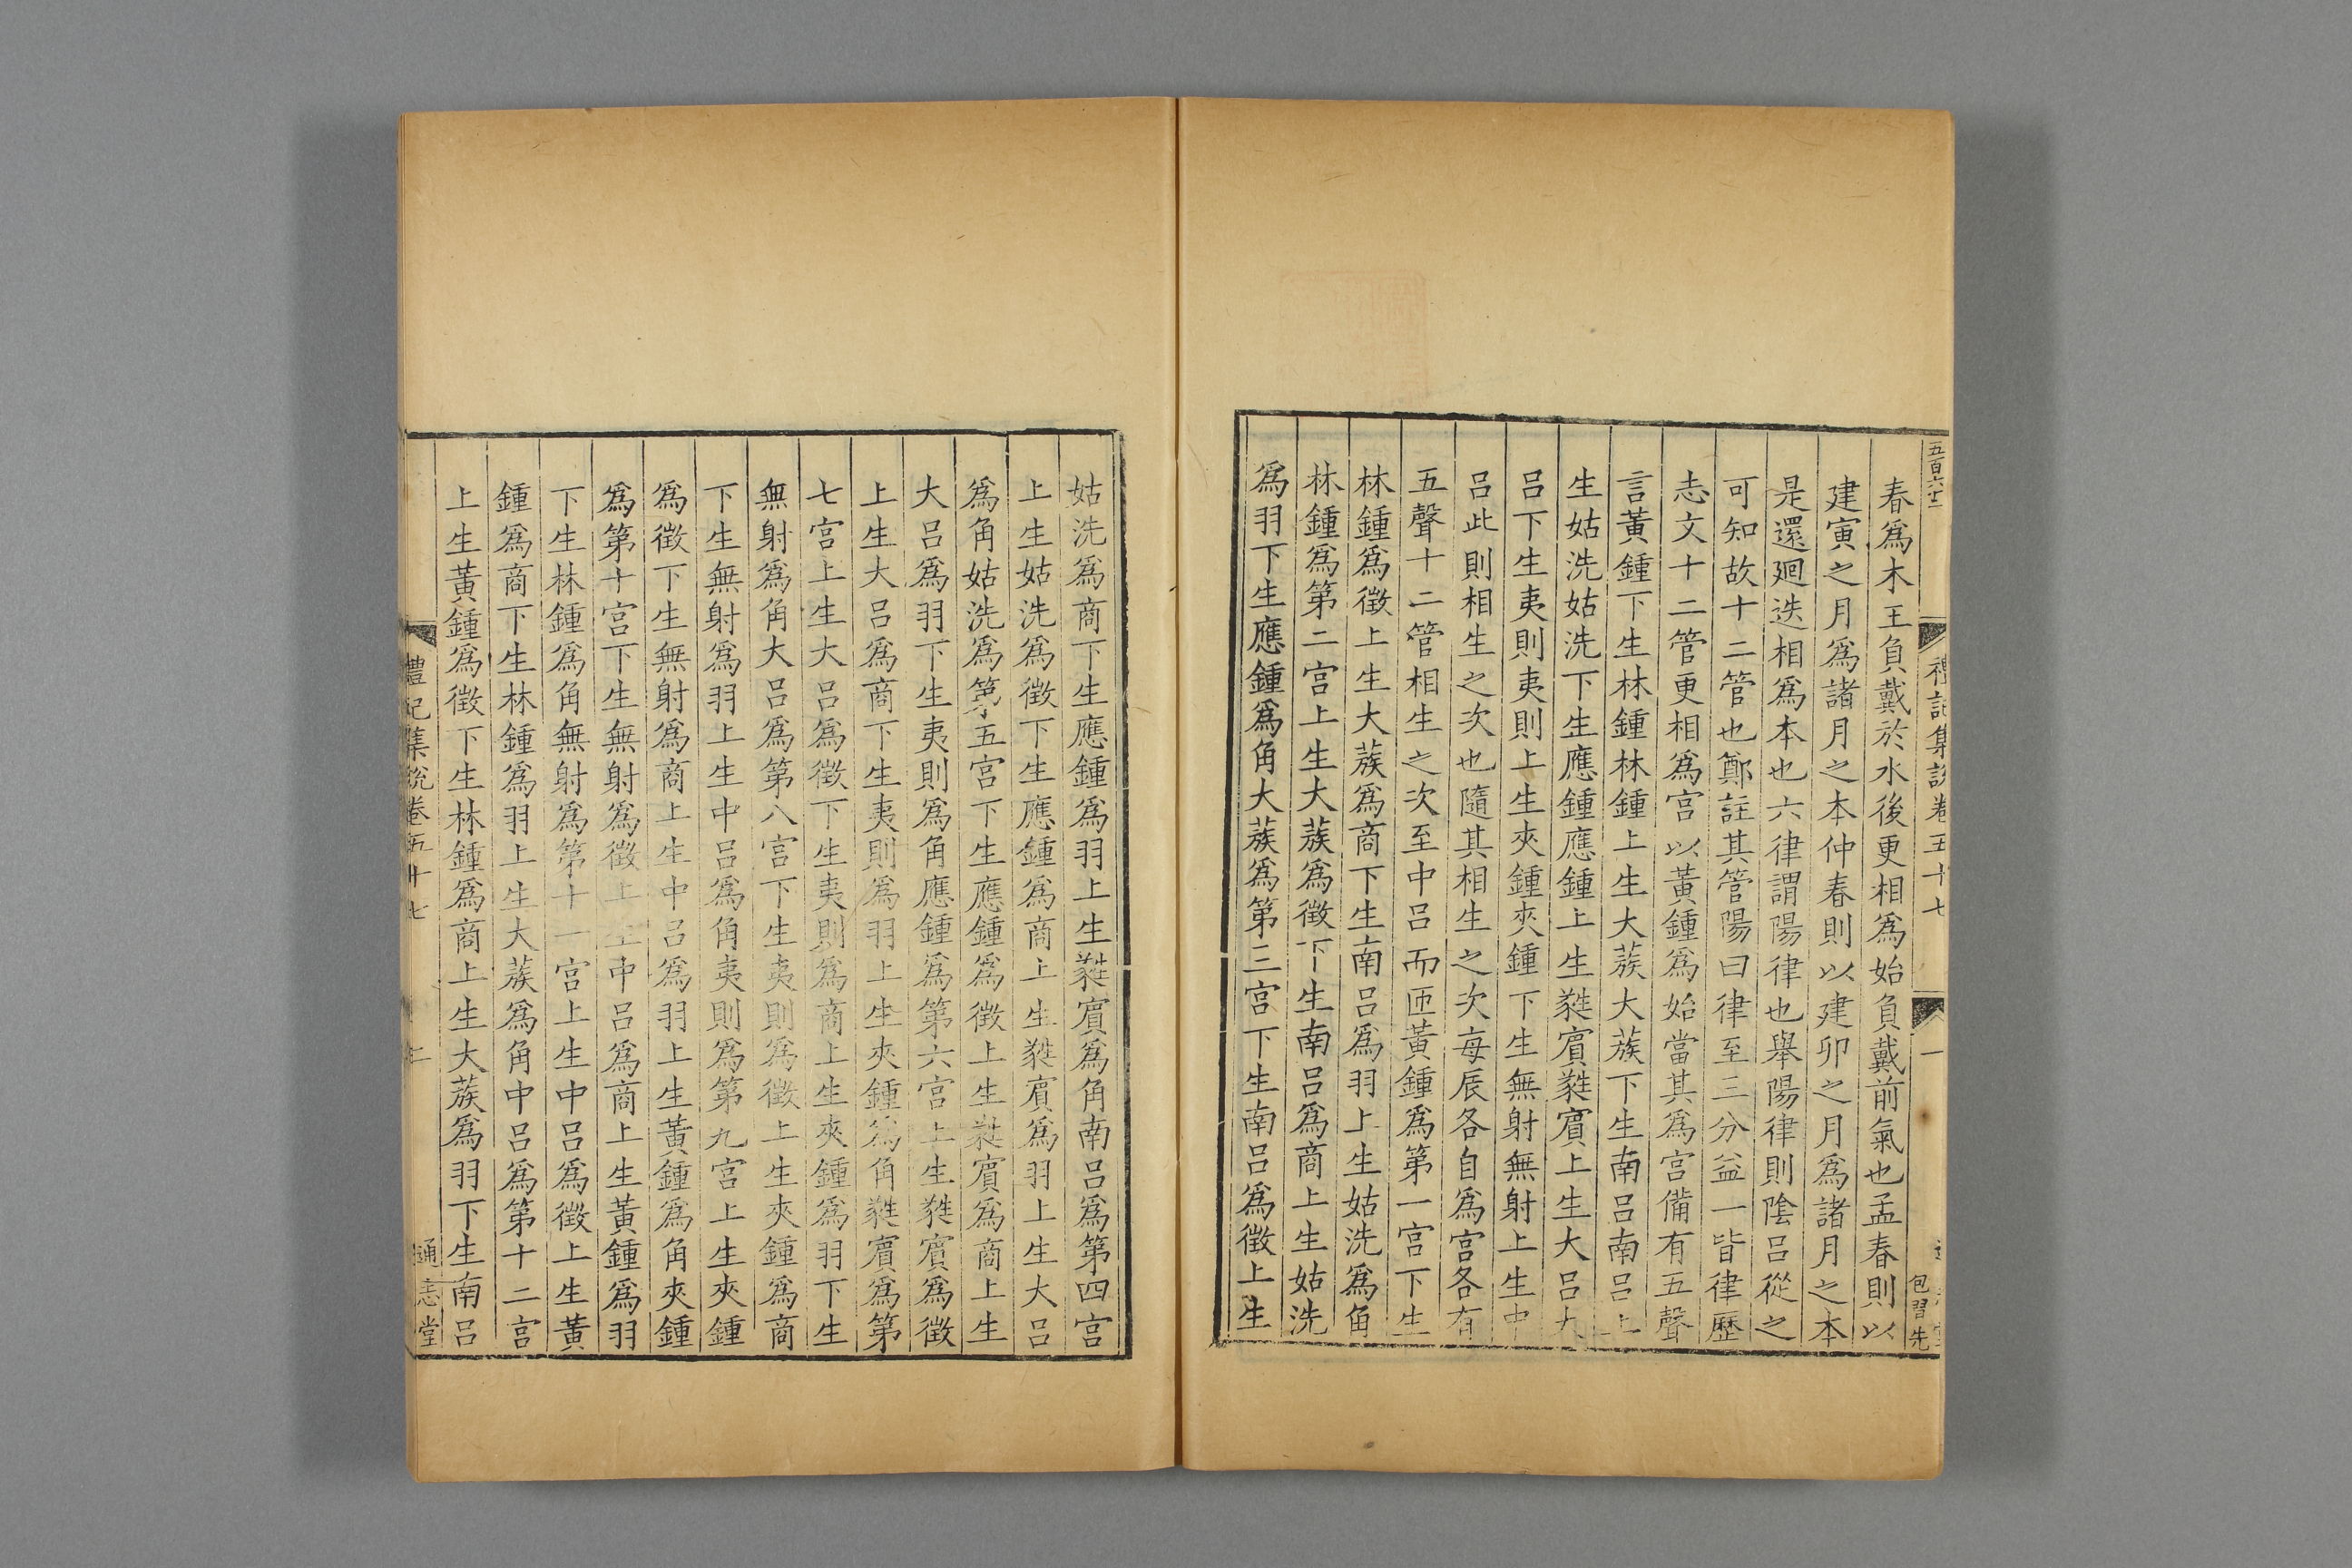 五百六十二
禮記集說卷五十七
一
包習先
春爲木王負戴於水後更相爲始負戴前氣也孟春則以
建寅之月爲諸月之本仲春則以建卯之月爲諸月之本
是還廻迭相爲本也六律謂陽律也舉陽律則陰呂從之
可知故十二管也鄭註其管陽曰律至三分益一皆律歷
志文十二管更相爲宮以黃鍾爲始當其爲宮備有五聲
言黃鍾下生林鍾林鍾上生大蔟大蔟下生南呂南呂上
生姑洗姑洗下生應鍾應鍾上生蕤賓蕤賓上生大呂大
呂下生夷則夷則上生夾鍾夾鍾下生無射無射上生中
呂此則相生之次也隨其相生之次每辰各自爲宮各有
五聲十二管相生之次至中呂而匝黃鍾爲第一宮下生
林鍾爲徵上生大蔟爲商下生南呂爲羽上生姑洗爲角
林鍾爲第二宮上生大蔟爲徵下生南呂爲商上生姑洗
爲羽下生應鍾爲角大蔟爲第三宮下生南呂爲徵上生
姑洗爲商下生應鍾爲羽上生蕤賓爲角南呂爲第四宮
上生姑洗爲徵下生應鍾爲商上生蕤賓爲羽上生大呂
爲角姑洗爲第五宮下生應鍾爲徵上生蕤賓爲商上生
大呂爲羽下生夷則爲角應鍾爲第六宮上生蕤賓爲徵
上生大呂爲商下生夷則爲羽上生夾鍾爲角蕤賓爲第
七宮上生大呂爲徵下生夷則爲商上生夾鍾爲羽下生
無射爲角大呂爲第八宮下生夷則爲徵上生夾鍾爲商
下生無射爲羽上生中呂爲角夷則爲第九宮上生夾鍾
爲徵下生無射爲商上生中呂爲羽上生黃鍾爲角夾鍾
爲第十宮下生無射爲徵上生中呂爲商上生黃鍾爲羽
下生林鍾爲角無射爲第十一宮上生中呂爲徵上生黃
鍾爲商下生林鍾爲羽上生大蔟爲角中呂爲第十二宮
上生黃鍾爲徵下生林鍾爲商上生大蔟爲羽下生南呂
禮記集說卷五十七
二
通志堂